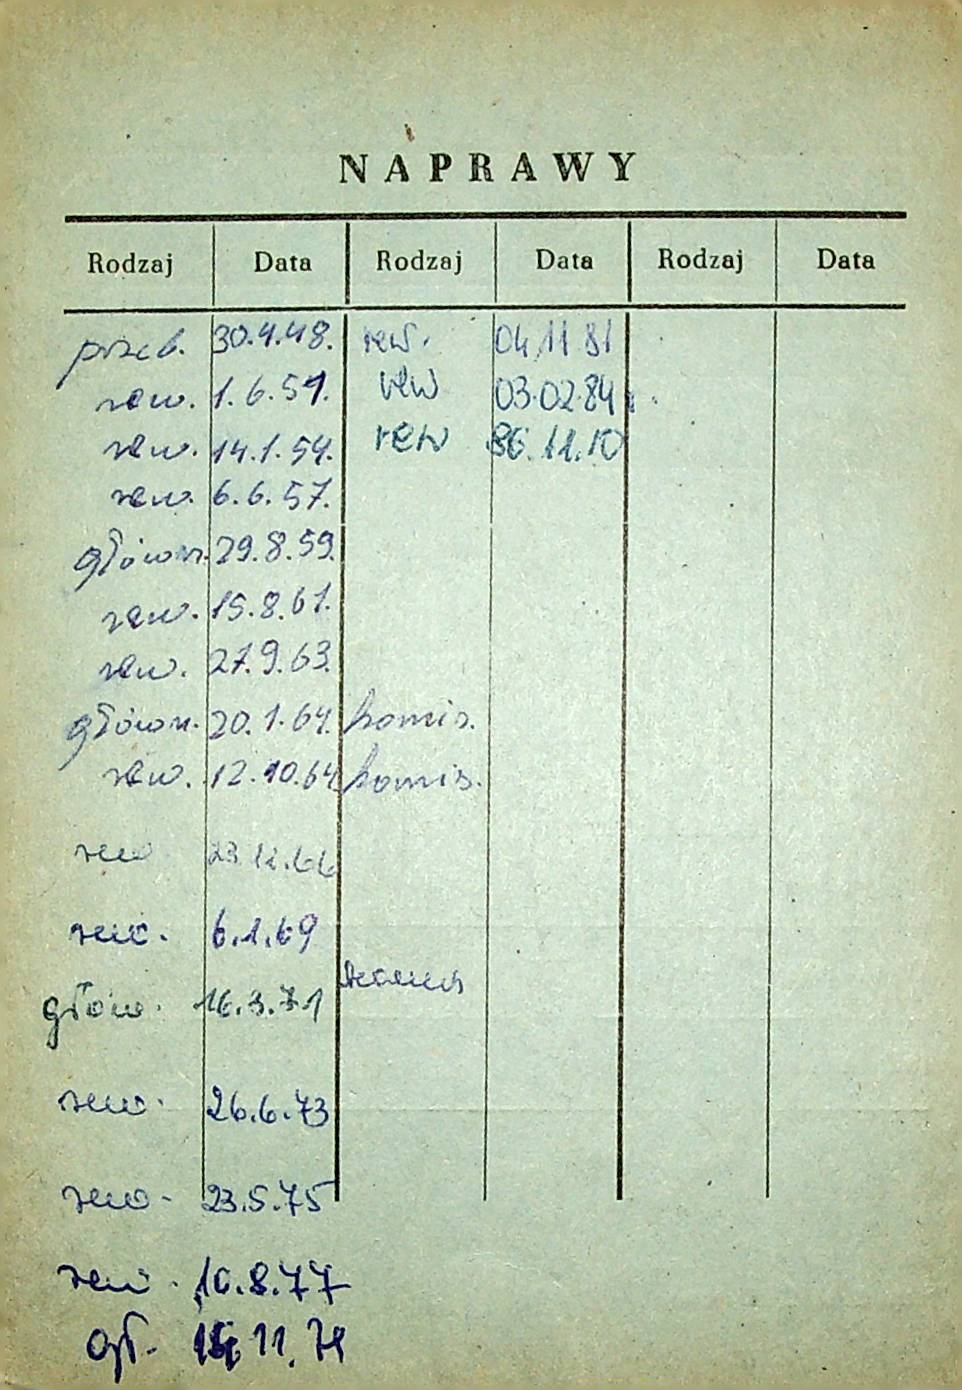 NAPRAWY
Rodzaj Data Rodzaj Data Rodzaj Data
przeb. 30.4.48. rew. 04 11 81
rew. 1.6.51. rew 03.02.84
rew. 14.1.54. rew 86.11.10
rew. 6.6.57.
główn. 29.8.59.
rew. 15.8.61.
rew. 27.9.63.
główn. 20.1.64. komis.
rew. 12.10.64 komis.
rew 23.12.66
rew. 6.1.69
głów. 16.3.71
rew. 26.6.73
rew. 23.5.75
rew. 10.8.77
gł. 11.